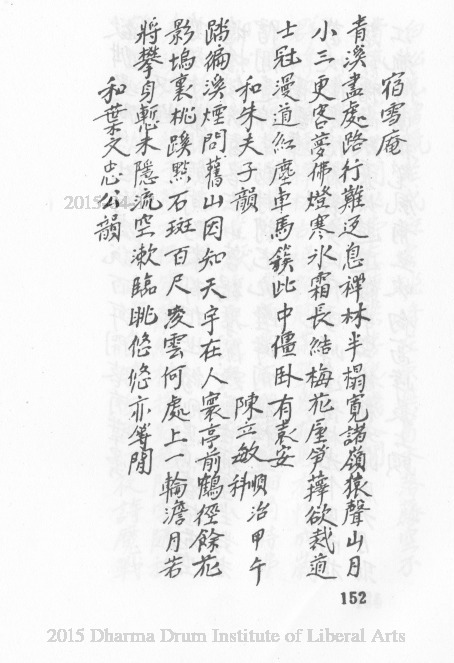 宿雪庵
青溪盡處路行難迓息禪林半榻寬諸嶺猿聲山月
小三更客夢佛燈寒氷霜長結梅花屋笋蘀欲裁道
士冠漫道紅塵車馬簇此中僵卧有袁安
和朱夫子韻
陳立敏順治甲午科
踏徧溪煙問舊山因知天宇在人寰亭前鶴徑餘花
影塢裏桃蹊點石斑百尺凌雲何處上一輪澹月若
將攀身慙未隱流空漱臨眺悠悠亦等閒
和葉文忠公韻
152
2015 Dharma Drum Institute of Liberal Arts